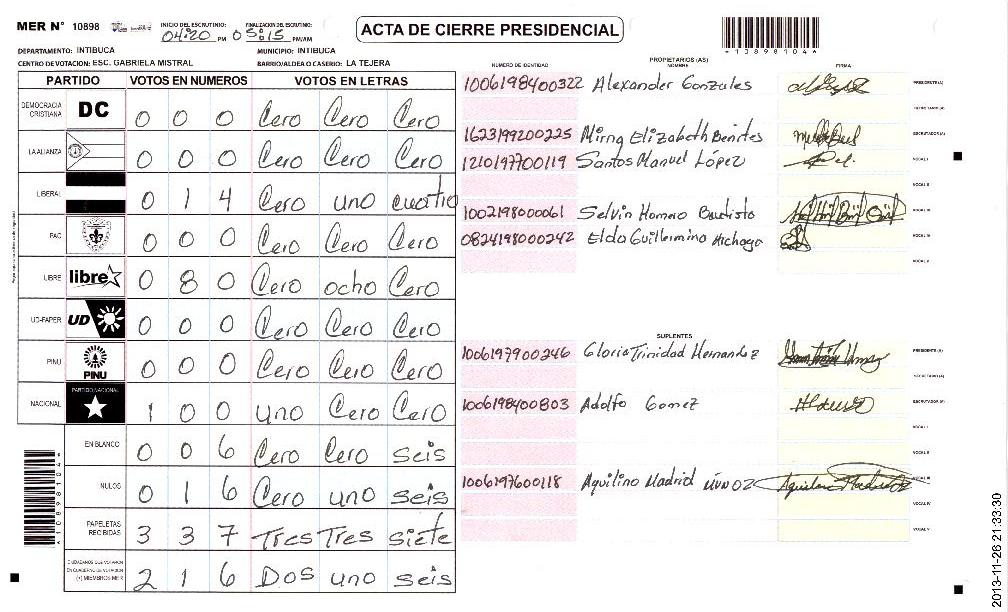 MER N° 10898 INICIO DEL ESCRUTINIO: 04:20 PM FINALIZACION DEL ESCRUTINIO: 05:15 PM/AM
ACTA DE CIERRE PRESIDENCIAL
*10898104*
DEPARTAMENTO: INTIBUCA MUNICIPIO: INTIBUCA
CENTRO DE VOTACION: ESC. GABRIELA MISTRAL BARRIO/ALDEA O CASERIO: LA TEJERA
PARTIDO VOTOS EN NUMEROS VOTOS EN LETRAS
DEMOCRACIA CRISTIANA DC 0 0 0 Cero Cero Cero
LA ALIANZA 0 0 0 Cero Cero Cero
LIBERAL 0 1 4 Cero uno cuatro
PAC 0 0 0 Cero Cero Cero
LIBRE libre 0 8 0 Cero ocho Cero
UD-FAPER UD 0 0 0 Cero Cero Cero
PINU PINU 0 0 0 Cero Cero Cero
NACIONAL PARTIDO NACIONAL 1 0 0 uno Cero Cero
EN BLANCO 0 0 6 Cero Cero seis
NULOS 0 1 6 Cero uno seis
PAPELETAS RECIBIDAS 3 3 7 Tres Tres siete
CIUDADANOS QUE VOTARON EN CUADERNO DE VOTACION (+) MIEMBROS MER 2 1 6 Dos uno seis
*10898104*
PROPIETARIOS (AS)
NUMERO DE IDENTIDAD NOMBRE FIRMA
1006198400322 Alexander Gonzales PRESIDENTE (A)
SECRETARIO (A)
1623199200225 Mirna Elizabeth Benites ESCRUTADOR (A)
1210197700119 Santos Manuel López VOCAL I
VOCAL II
1002198000061 Selvin Homero Bautista VOCAL III
0824198000242 Elda Guillermina VOCAL IV
VOCAL V
SUPLENTES
1006197900246 Gloria Trinidad Hernandez PRESIDENTE (A)
SECRETARIO (A)
1006198400803 Adolfo Gomez ESCRUTADOR (A)
VOCAL I
VOCAL II
1006197600118 Aquilino Madrid VOCAL III
VOCAL IV
VOCAL V
2013-11-26 21:33:30